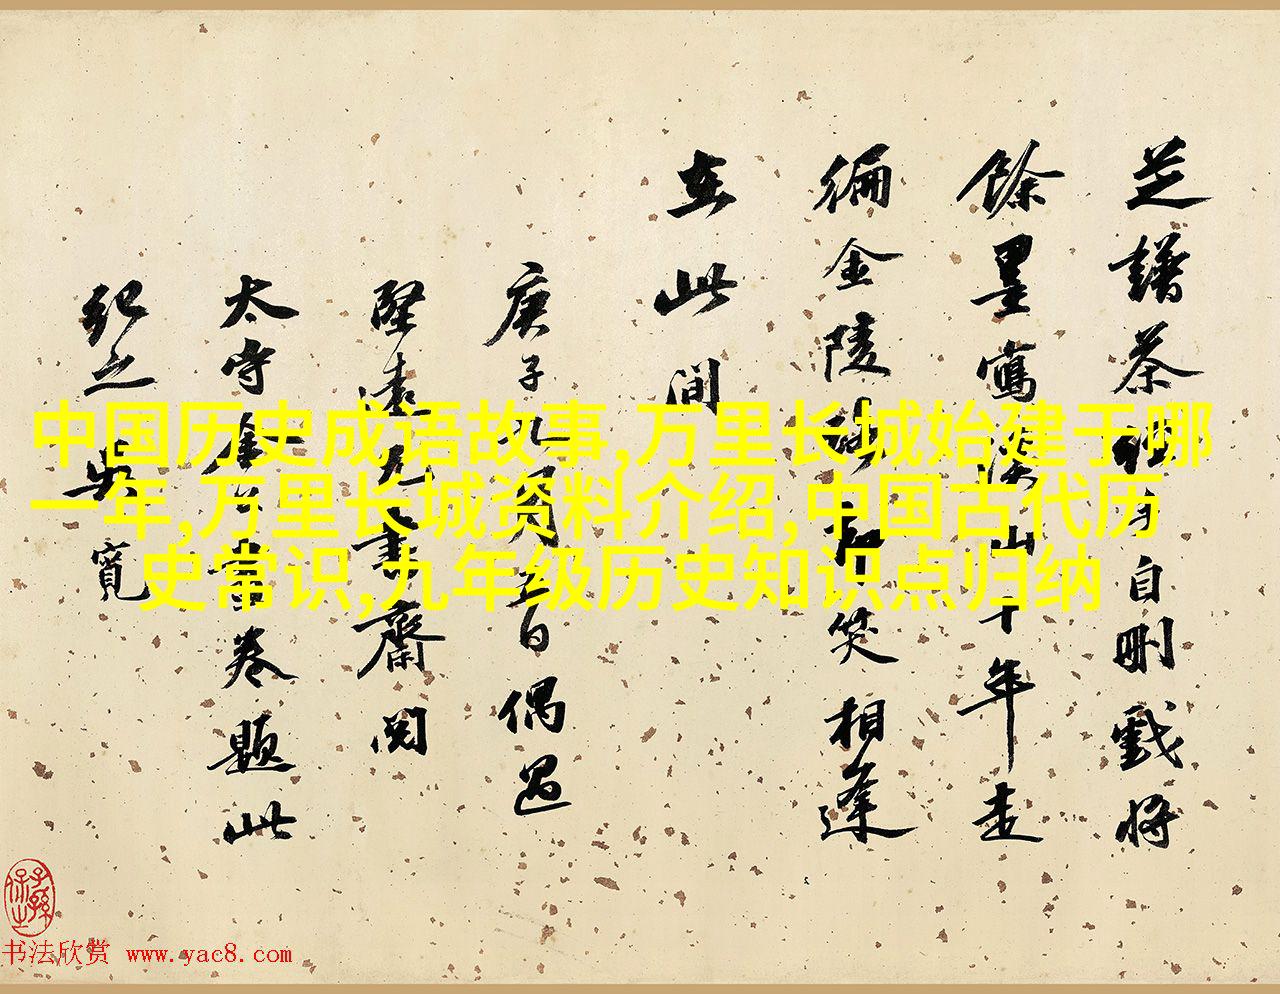 芝譜茶自刪戲將
餘墨寫溪山十年走
徧金陵笑相逢
在此間
庚子九月五日偶過
堅遠書齋閱
太守卷題此
紀之吳寬
中国历史成语故事,万里长城始建于哪
一年,万里长城资料介绍,中国古代历
史常识,九年级历史知识点归纳
书法欣赏 www.yac8.com